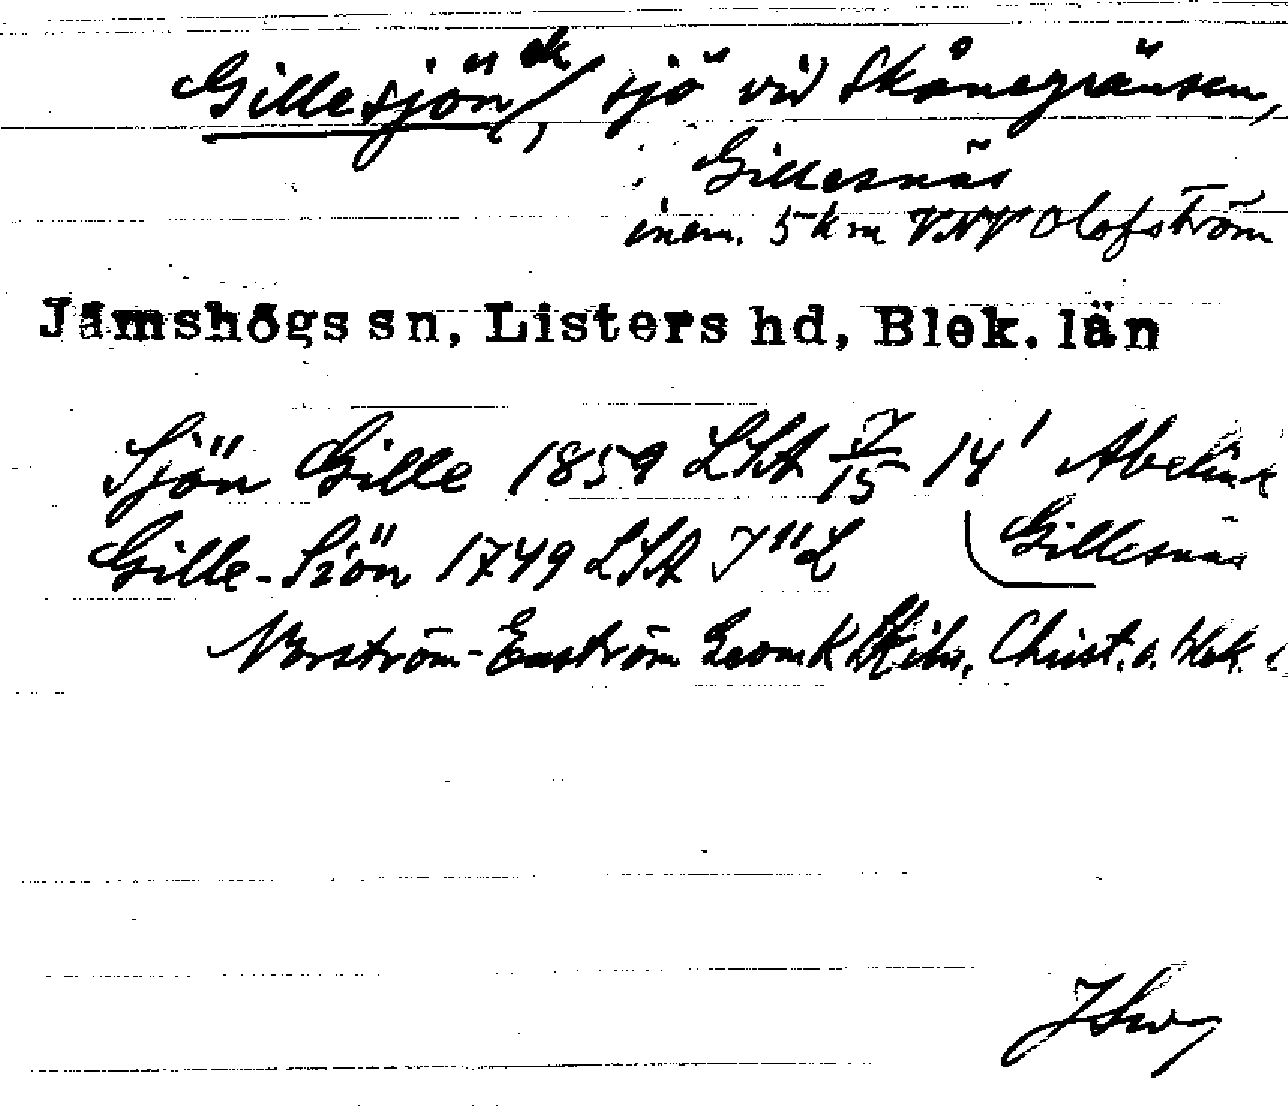 Gillesjön ek, sjö vid Skånegränsen,
Gillesnäs
inem. 5 km VNV Olofström
Jämshögs sn, Listers hd, Blek. län
Sjön Gille 1859 LSA J/15 14' Abelinx
Gille-Siön 1749 LSA J"2 Gillesnäs
Norström-Enström Geom K Chist. o. Blek.